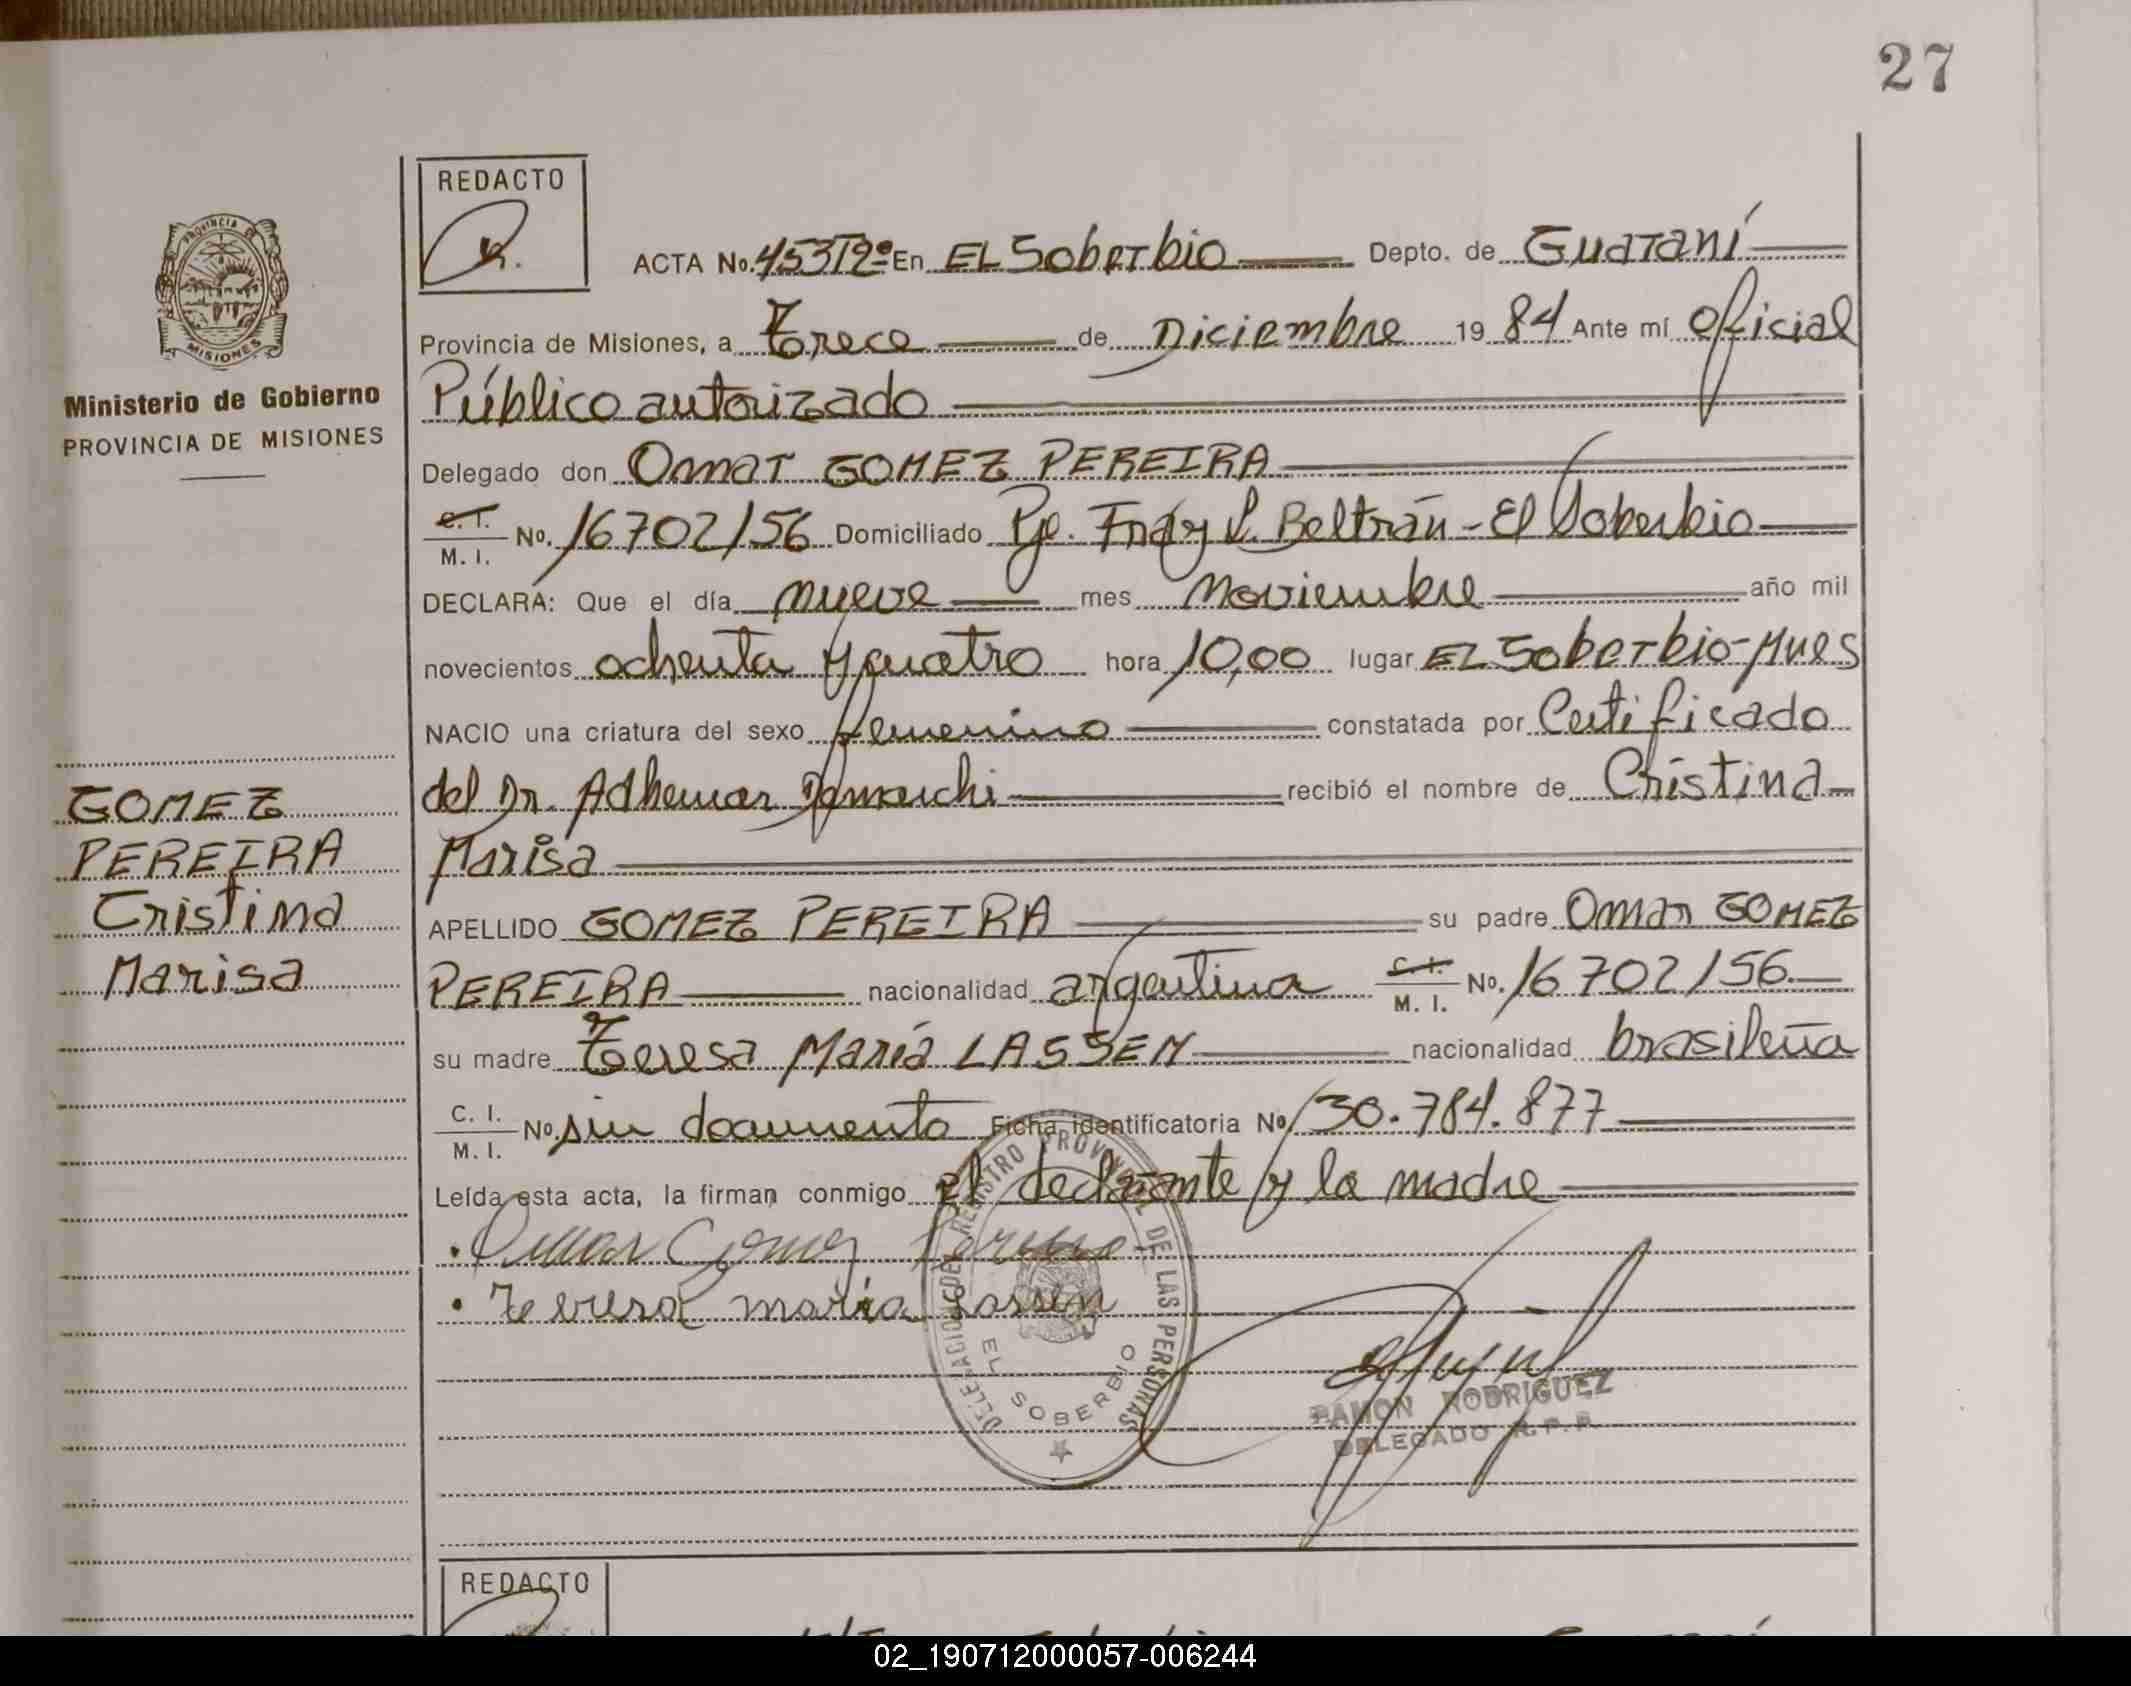 27
REDACTO
PROVINCIA DE
MISIONES
Ministerio de Gobierno
PROVINCIA DE MISIONES
ACTA No. 453T2º En EL Soberbio Depto. de Guaraní
Provincia de Misiones, a Trece de Diciembre 1984 Ante mí Oficial
Público autorizado
Delegado don Omar GOMEZ PEREIRA
C. I. / M. I. No. 16702/56 Domiciliado Pje. Fray L. Beltrán - El Soberbio
DECLARA: Que el día nueve mes Noviembre año mil
novecientos ochenta y cuatro hora 10,00 lugar EL Soberbio-Mnes
NACIO una criatura del sexo femenino constatada por Certificado
del Dr. Adhemar Demarchi recibió el nombre de Cristina
Marisa
GOMEZ
PEREIRA
Cristina
Marisa
APELLIDO GOMEZ PEREIRA su padre Omar GOMEZ
PEREIRA nacionalidad argentina C. I. / M. I. No. 16702/56
su madre Teresa María LASSEN nacionalidad brasileña
C. I. / M. I. No. sin documento Ficha identificatoria No 30.784.877
Leída esta acta, la firman conmigo el declarante y la madre
Omar Gomez Pereira
Teresa maria Lassen
DELEGACION DEL REGISTRO PROVINCIAL DE LAS PERSONAS
EL SOBERBIO
RAMON RODRIGUEZ
DELEGADO R.P.P.
REDACTO
02_190712000057-006244